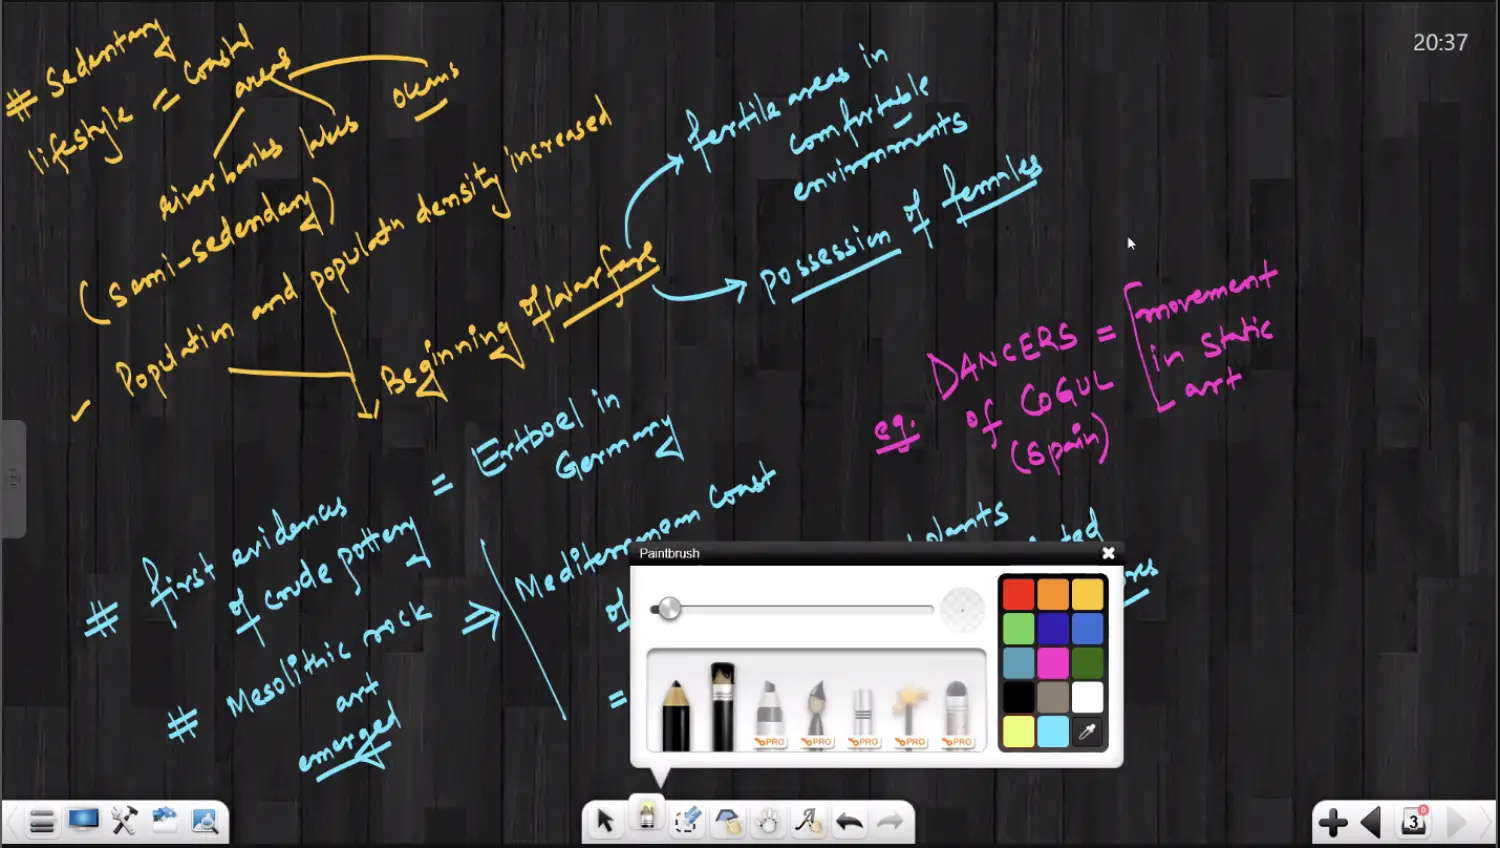 20:37
# Sedentary
lifestyle = coastal
areas
riverbanks lakes oceans
(semi-sedendary)
✓ Population and populatn density increased
Beginning of warfare
fertile areas in
comfortable
environments
possession of females
eg. DANCERS =
of COGUL
(spain)
movement
in static
art
# first evidences
of crude pottery
= Ertboel in
Germany
# Mesolithic rock
art
emerged
⇒ Mediterranean coast
of
=
plants
Paintbrush
PRO PRO PRO PRO PRO
3
0